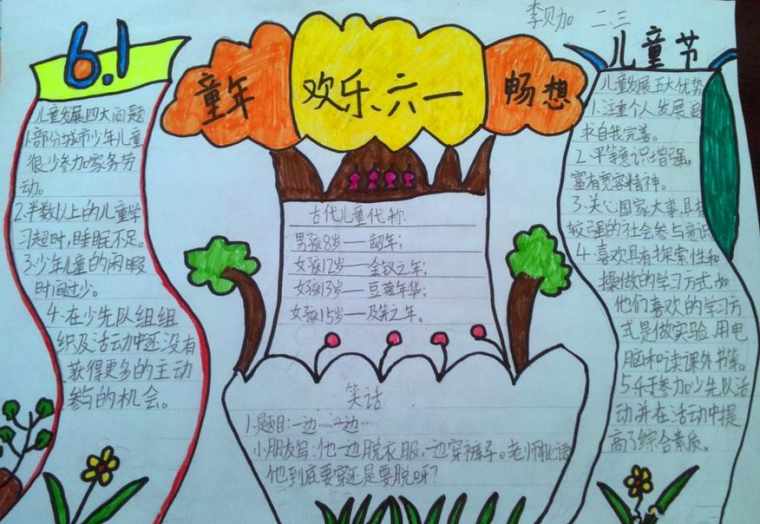 李贝加 二.三
6.1
童年
欢乐六一
畅想
儿童节
儿童发展四大问题
1.部分城市少年儿童
很少参加家务劳
动。
2.半数以上的儿童学
习超时,睡眠不足。
3.少年儿童的闲暇
时间过少。
4.在少先队组组
织及活动中还没有
获得更多的主动
参与的机会。
古代儿童代称
男孩8岁——龆年;
女孩12岁——金钗之年;
女孩13岁——豆蔻年华;
女孩15岁——及笄之年。
笑话
1.题目:一边…一边…
小朋友写:他一边脱衣服,一边穿裤子。老师批语:
他到底要穿还是要脱呀?
儿童发展五大优势
1.注重个人发展
来自我完善。
2.平等意识增强。
富有宽容精神。
3.关心国家大事,具有
较强的社会参与意识
4.喜欢具有探索性和
操做的学习方式,如
他们喜欢的学习方
式是做实验、用电
脑和读课外书等。
5.乐于参加少先队活
动并在活动中提
高了综合素质。